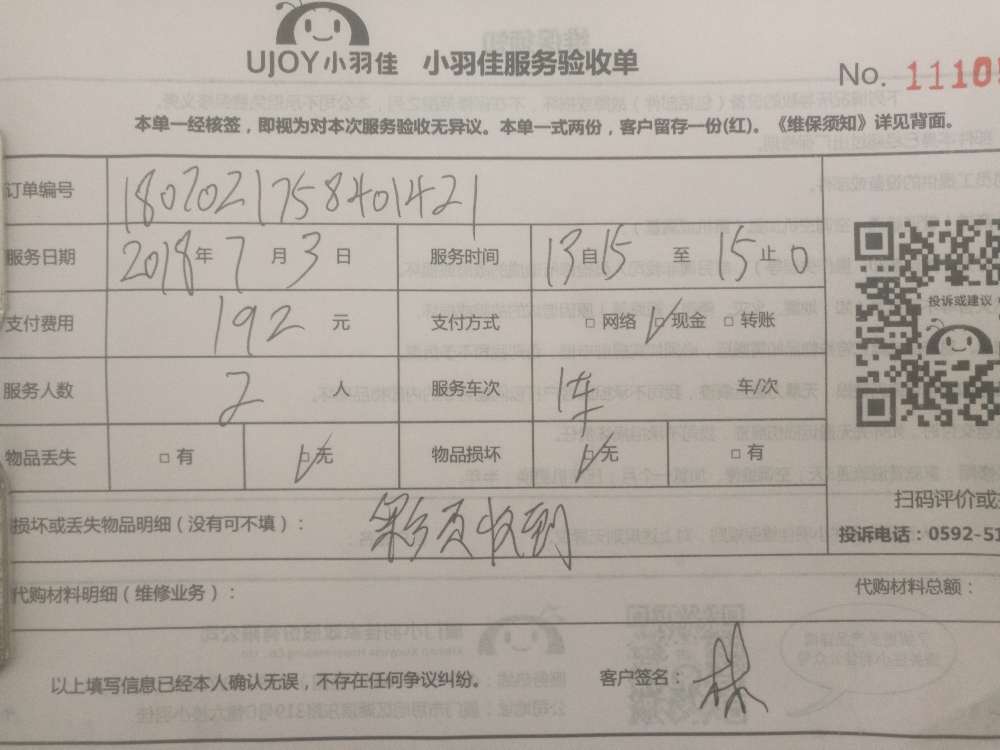 UJOY小羽佳 小羽佳服务验收单
No. 11108
本单一经核签，即视为对本次服务验收无异议。本单一式两份，客户留存一份(红)。《维保须知》详见背面。
订单编号 1807021758401421
服务日期 2018年7月3日 服务时间 13自15至15止0
支付费用 192元 支付方式 □网络 ☑现金 □转账
投诉或建议
服务人数 2人 服务车次 1车 车/次
物品丢失 □有 ☑无 物品损坏 ☑无 □有
扫码评价或
损坏或丢失物品明细（没有可不填）： 彩页收到
投诉电话：0592-51
代购材料明细（维修业务）： 代购材料总额：
以上填写信息已经本人确认无误，不存在任何争议纠纷。 客户签名： 林